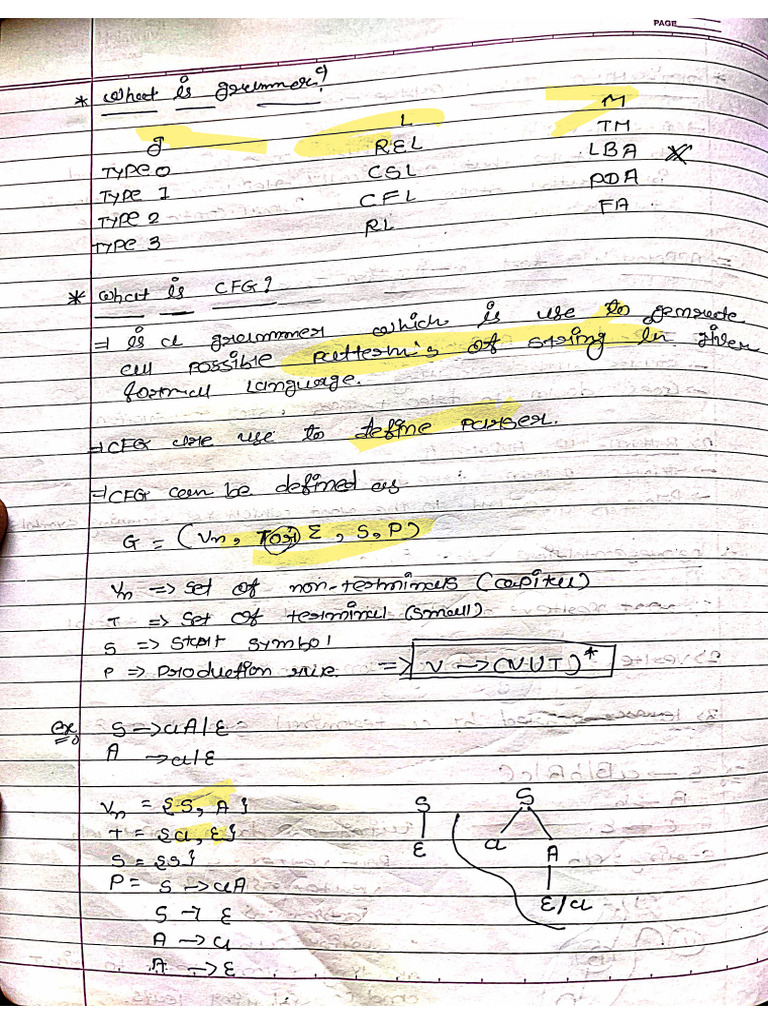 PAGE
* What is grammar?
G L M
TYPE 0 REL TM
TYPE 1 CSL LBA
TYPE 2 CFL PDA
TYPE 3 RL FA
* What is CFG?
→ is a grammer which is use to genrate
all possible pattern's of string in given
formal language.
→ CFG are use to define parser.
→ CFG can be defined as
G = (Vn, T or Σ, S, P)
Vn => set of non-terminals (capital)
T => set of terminal (small)
S => Start symbol
P => production rule. => V → (V U T)*
ex. S → aA | ε
A → a | ε
Vn = {S, A}
T = {a, ε}
S = {S}
P = S → aA
S → ε
A → a
A → ε
S S
ε a A
ε/a